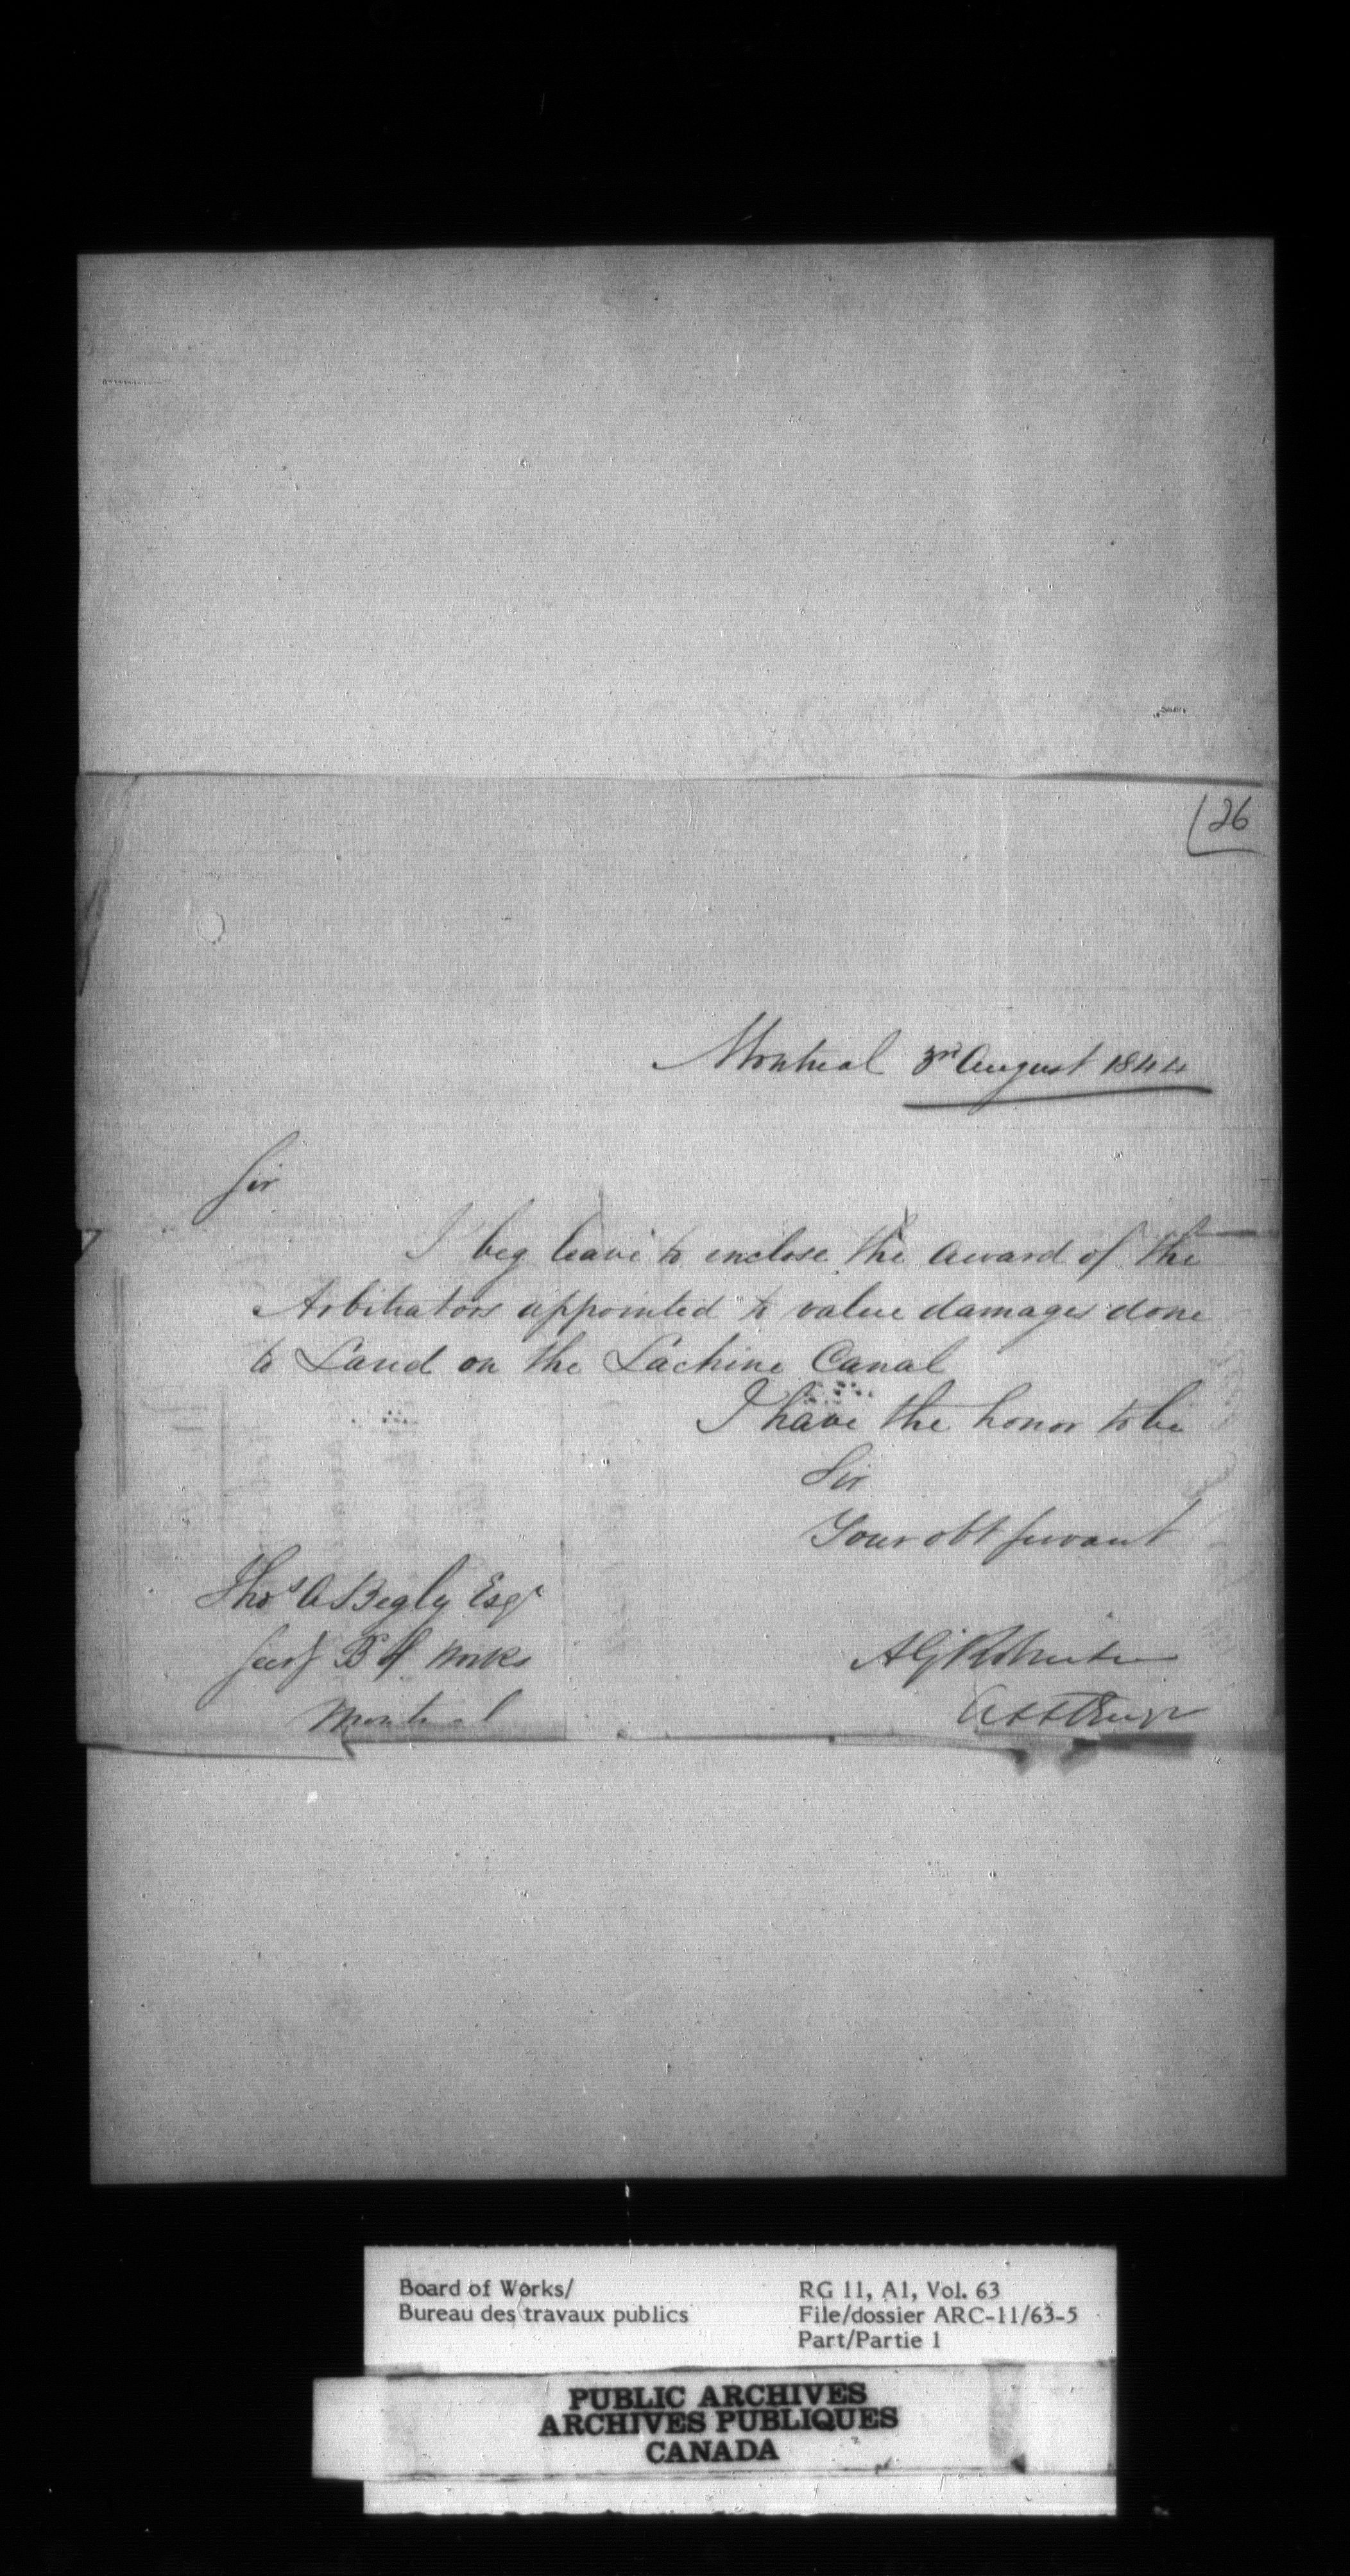 26
Montreal 3rd August 1844
Sir
I beg leave to enclose the award of the
Arbitrators appointed to value damages done
to Land on the Lachine Canal
I have the honor to be
Sir
Your obt servant
Thos A Begly Esqr
Secy Bd of Works
Montreal
A G Robinson
Asst Engr
Board of Works/
Bureau des travaux publics
RG 11, A1, Vol. 63
File/dossier ARC-11/63-5
Part/Partie 1
PUBLIC ARCHIVES
ARCHIVES PUBLIQUES
CANADA